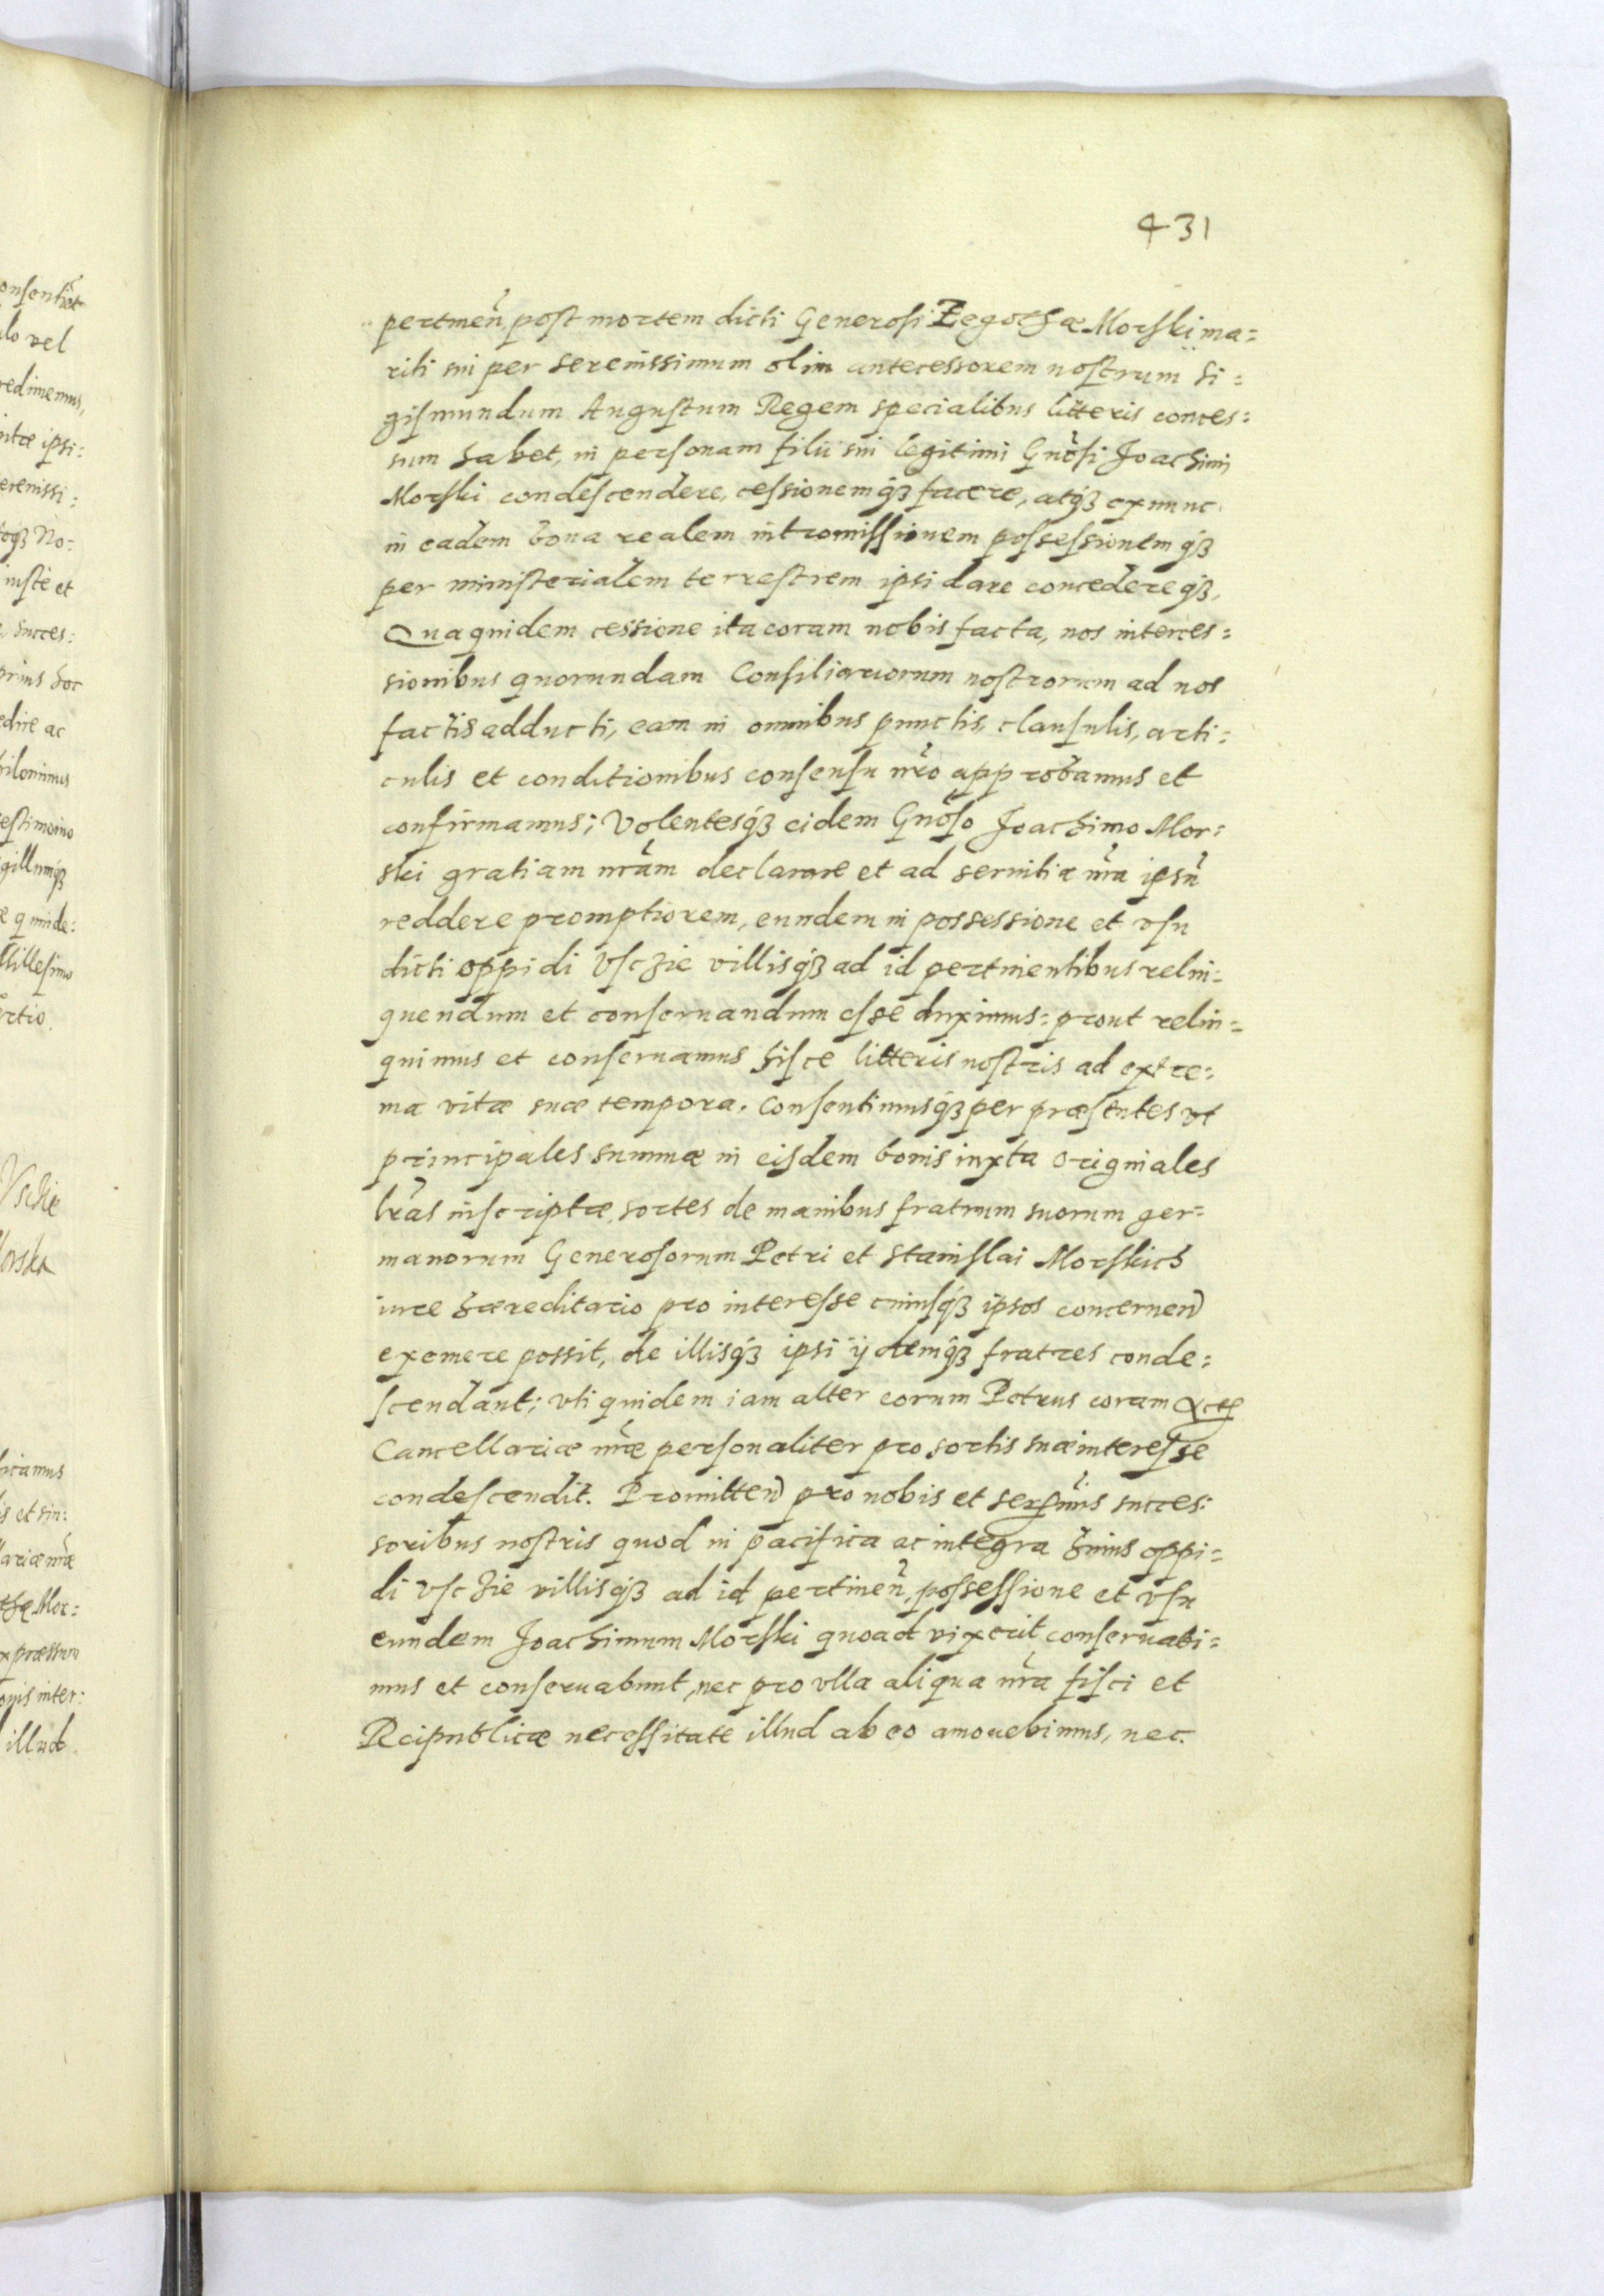 431
pertinen̄, post mortem dicti Generosi Zegothæ Morski ma=
riti sui per serenissimum olim antecessorem nostrum Si=
gismundum Augustum Regem specialibus litteris conces=
sum habet, in personam filii sui legitimi Gnōsi Joachimi
Morski condescendere, cessionemq́ꝫ facere, atq́ꝫ exnunc
in eadem bona realem intromissionem possessionemq́ꝫ
per ministerialem terrestrem ipsi dare concedereq́ꝫ.
Qua quidem cessione ita coram nobis facta, nos interces=
sionibus quorundam Consiliariorum nostrorum ad nos
factis adducti, eam in omnibus punctis, clausulis, arti=
culis et conditionibus consensu nr̄o approbamus et
confirmamus; Volentesq́ꝫ eidem Gnōso Joachimo Mor=
ski gratiam nr̄am declarare et ad seruitia nr̄a ipsū
reddere promptiorem, eundem in possessione et vsu
dicti oppidi Vsczie villisq́ꝫ ad id pertinentibus relin=
quendum et conseruandum esse duximus: prout relin=
quimus et conseruamus hisce litteris nostris ad extre=
ma vitæ suæ tempora. Consentimusq́ꝫ per præsentes vt
principales summæ in eisdem bonis iuxta originales
lr̄as inscriptæ, sortes de manibus fratrum suorum ger=
manorum Generosorum Petri et Stanislai Morskich
iure hæreditario pro interesse cuiusq́ꝫ ipsos concernen̄
exemere possit, de illisq́ꝫ ipsi ijdemq́ꝫ fratres conde=
scendant; vti quidem iam alter eorum Petrus coram Actis
Cancellariæ nr̄æ personaliter pro sortis suæ interesse
condescendit. Promitten̄ pro nobis et serēnmis succes:
soribus nostris quod in pacifica ac integra huius oppi=
di Vsczie villisq́ꝫ ad id pertinen̄, possessione et vsu
eundem Joachimum Morski quoad vixerit conseruabi=
mus et conseruabunt, nec pro vlla aliqua nr̄a fisci et
Reipublicæ necessitate illud ab eo amouebimus, nec